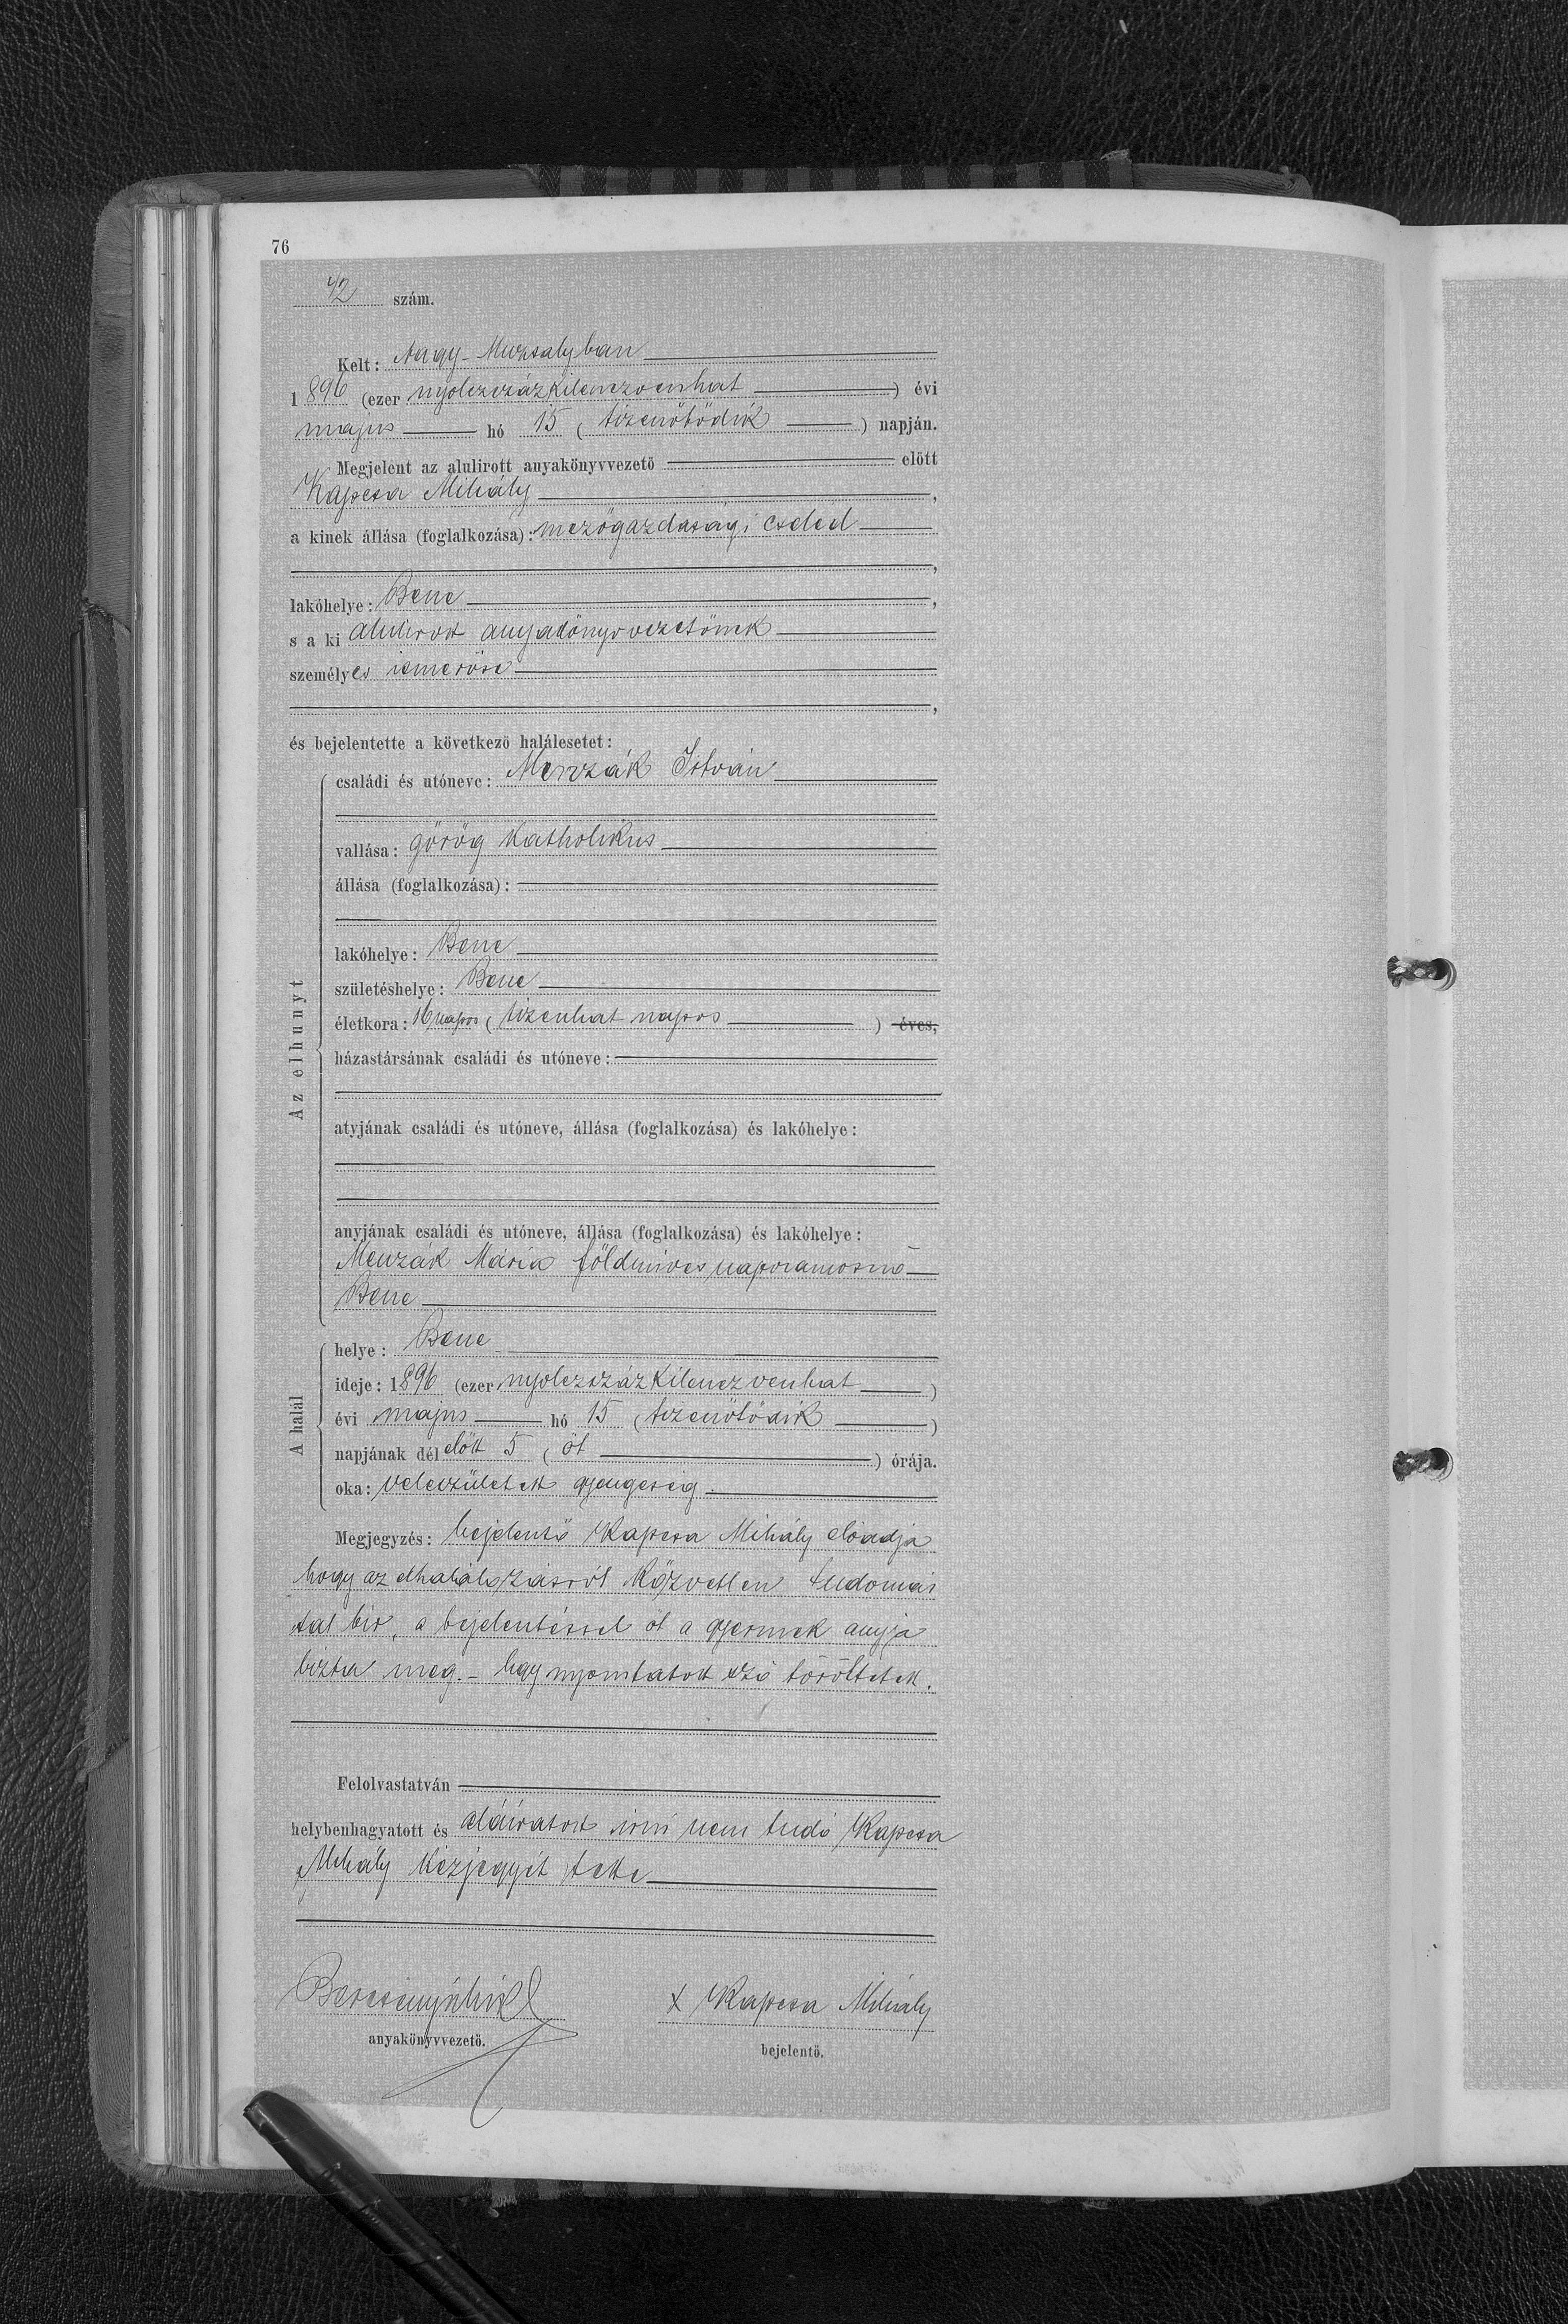 76
42 szám.
Kelt: Nagy-Muzsalyban
1896 (ezer nyolczszázkilenczvenhat) évi
majus hó 15 (tizenötödik) napján.
Megjelent az alulirott anyakönyvvezető előtt
Kapcsa Mihály,
a kinek állása (foglalkozása): mezőgazdasági cseled
,
lakóhelye: Bene,
s a ki alulirott anyakönyvvezetőnek
személyes ismerőse
,
és bejelentette a következő halálesetet:
Az elhunyt
családi és utóneve: Menzák István
vallása: görög katholikus
állása (foglalkozása):
lakóhelye: Bene
születéshelye: Bene
életkora: 16 napos (tizenhat napos) éves,
házastársának családi és utóneve:
atyjának családi és utóneve, állása (foglalkozása) és lakóhelye:
anyjának családi és utóneve, állása (foglalkozása) és lakóhelye:
Menzák Mária földmíves napszamosnő
Bene
A halál
helye: Bene
ideje: 1896 (ezer nyolczszázkilenczvenhat)
évi majus hó 15 (tizenötödik)
napjának délelőtt 5 (öt) órája.
oka: veleszületett gyengeség
Megjegyzés: bejelentő Kapcsa Mihály előadja
hogy az elhalálozásról közvetlen tudomás
sal bir, a bejelentéssel őt a gyermek anyja
bizta meg. – Egy nyomtatott szó töröltetett.
Felolvastatván
helybenhagyatott és aláiratott irni nem tudó Kapcsa
Mihály kézjegyét tette
anyakönyvvezető.
x Kapcsa Mihály
bejelentő.